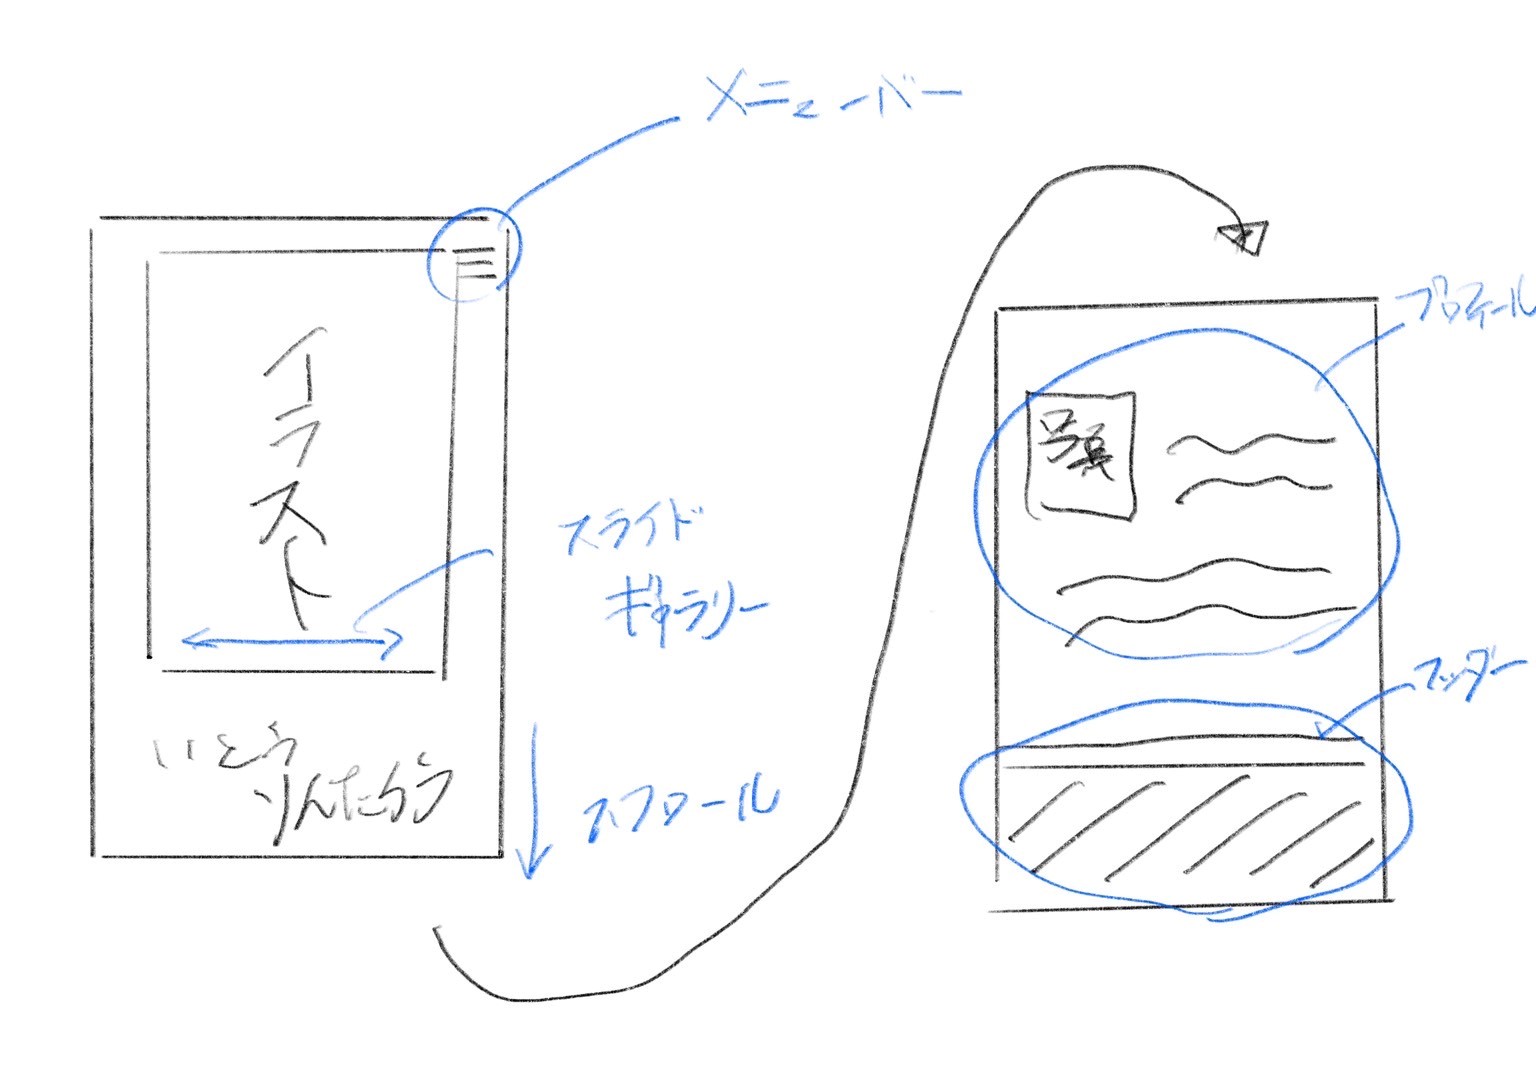 メニューバー
イラスト
スライド
ギャラリー
いとう
りんたろう
スクロール
プロフィール
写真
フッター